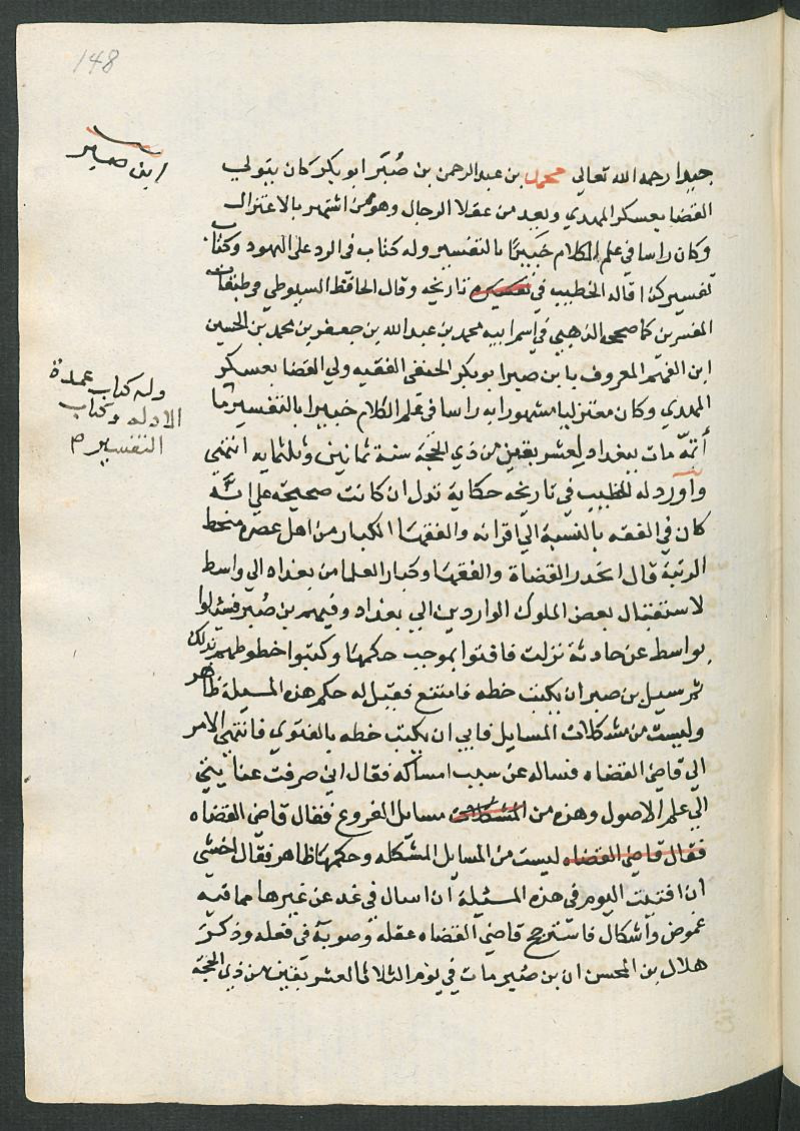 148
ابن صبر
جيدا رحمه الله تعالى محمد بن عبد الرحمن بن صُبَر ابو بكر كان يتولى
القضا بعسكر المهدي ويعد من عقلا الرجال وهو ممن اشتهر بالاعتزال
وكان راسا في علم الكلام خبيرًا بالتفسير وله كتاب في الرد على اليهود وكتاب
تفسير كذا قاله الخطيب في تفسيره تاريخه وقال الحافظ السيوطي في طبقات
المفسرين كما صححه الذهبي في اسم ابيه محمد بن عبد الله بن جعفر بن محمد بن الحسين
ابن الفهم المعروف بابن صبر ابو بكر الحنفي الفقيه ولي القضا بعسكر
المهدي وكان معتزليا مشهورا به راسا في علم الكلام خبيرا بالتفسير
وله كتاب عمدة
الادله وكتاب
التفسير م
مات ببغداد لعشر بقين من ذي الحجة سنة ثمانين وثلثمايه انتهى
وأورد له الخطيب في تاريخه حكاية تدل ان كانت صحيحة على انه
كان في الفقه بالنسبة الى اقرانه والفقها الكبار من اهل عصره منحط
الرتبة قال انحدر القضاة والفقها وكبار العلما من بغداد الى واسط
لاستقبال بعض الملوك الواردين الى بغداد وفيهم بن صُبر فسئلوا
بواسط عن حادثة نزلت فافتوا بموجب حكمها وكتبوا خطوطهم بذلك
ثم سيل بن صبر ان يكتب خطه فامتنع فقيل له حكم هذه المسيلة ظاهر
وليست من مشكلات المسايل فابى ان يكتب خطه بالفتوى فانتهى الامر
الى قاضي القضاه فساله عن سبب امساكه فقال اني صرفت عنايتي
الى علم الاصول وهذه من المشكلات مسايل الفروع فقال قاضي القضاه
فقال قاضي القضاه ليست من المسايل المشكله وحكمها ظاهر فقال اخشى
ان افتيت اليوم في هذه المسئيلة ان اسال في غد عن غيرها مما فيه
غموض وأشكال فاسترجح قاضي القضاه عقله وصوبة في فعله وذكر
هلال بن المحسن ان بن صُبر مات في يوم الثلاثا لعشر بقين من ذي الحجة